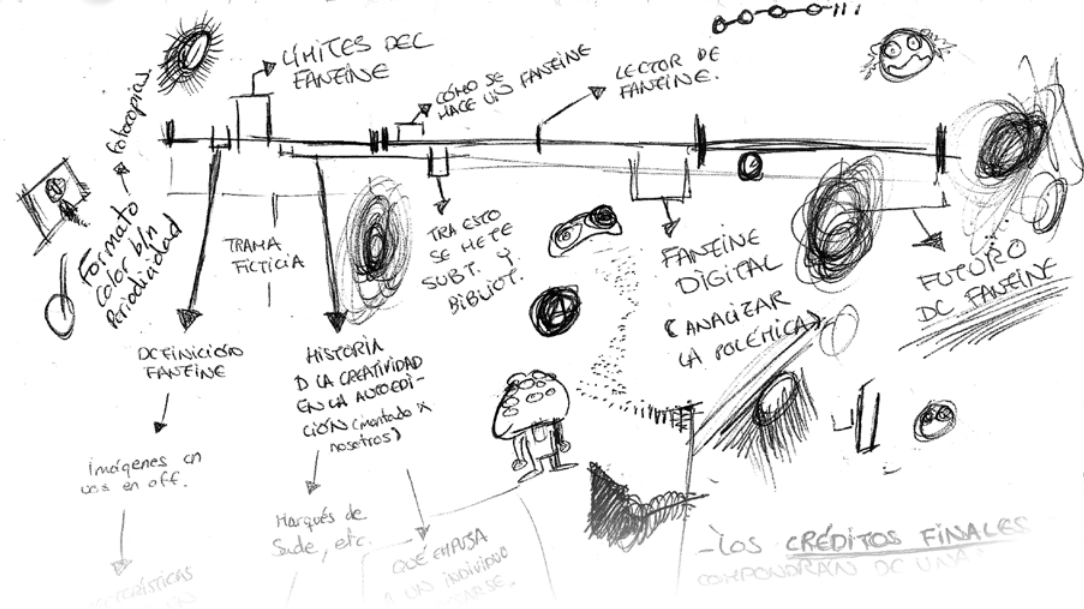 LÍMITES DEL
FANZINE
CÓMO SE
HACE UN FANZINE
LECTOR DE
FANZINE.
Fotocopias
Formato
Color b/n
Periodicidad
TRAMA
FICTICIA
TRA ESTO
SE METE
SUBT. Y
BIBLIOT.
FANZINE
DIGITAL
(ANALIZAR
LA POLÉMICA)
FUTURO
DE FANZINE
DEFINICIÓN
FANZINE
HISTORIA
D LA CREATIVIDAD
EN LA AUTOEDI-
CIÓN (montado x
nosotros)
A
Imágenes en
voz en off.
Marqués de
Sade, etc.
QUÉ EMPUJA
A UN INDIVIDUO
- LOS CRÉDITOS FINALES
COMPONDRÁN DE UNA